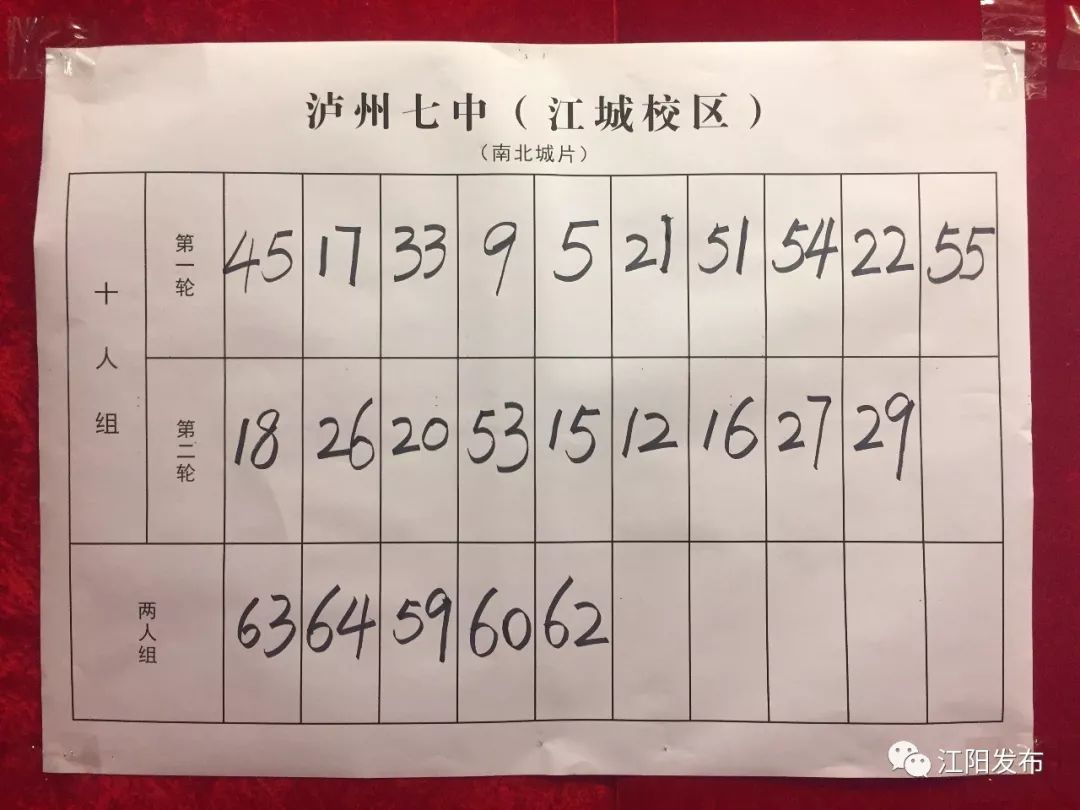 泸州七中（江城校区）
（南北城片）
十人组
第一轮 45 17 33 9 5 21 51 54 22 55
第二轮 18 26 20 53 15 12 16 27 29
两人组 63 64 59 60 62
江阳发布